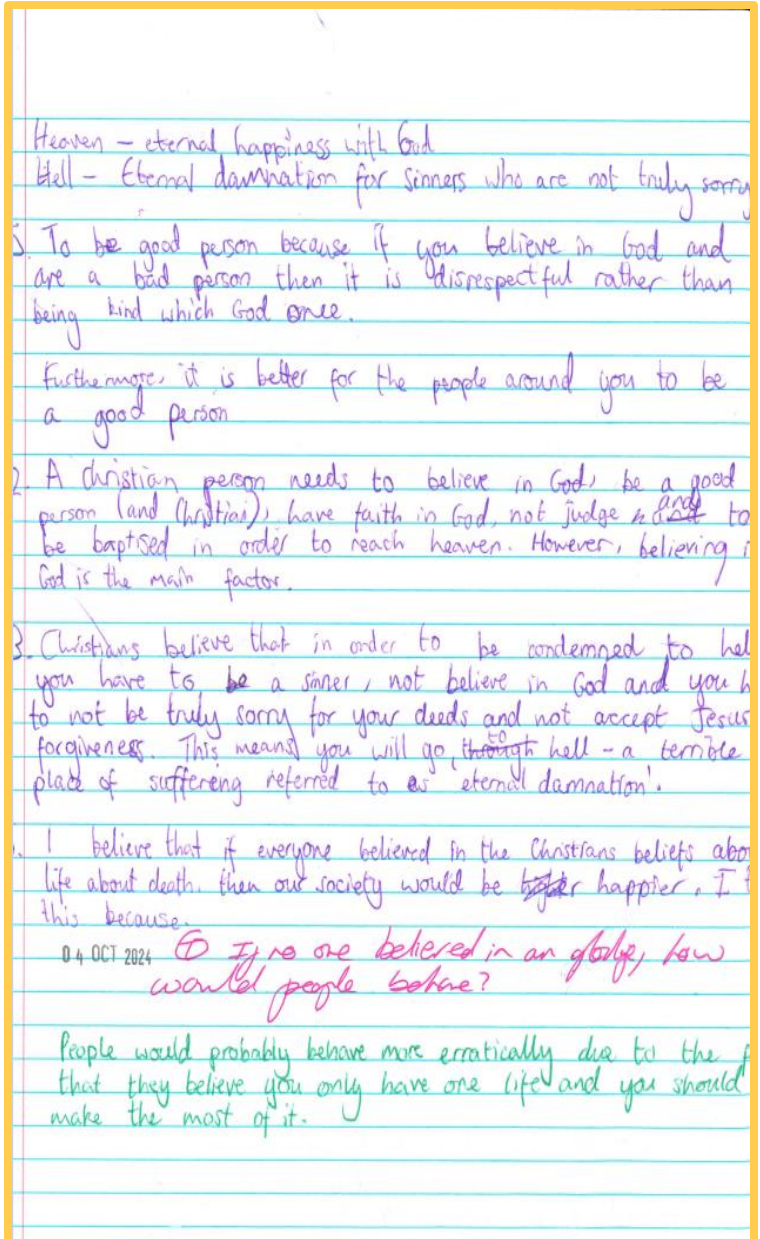 Heaven – eternal happiness with God
Hell – Eternal damnation for sinners who are not truly sorry
5. To be good person because if you believe in God and
are a bad person then it is disrespectful rather than
being kind which God once.
Furthermore, it is better for the people around you to be
a good person
2. A christian person needs to believe in God, be a good
person (and Christian), have faith in God, not judge and to
be baptised in order to reach heaven. However, believing i
God is the main factor.
3. Christians believe that in order to be condemned to hel
you have to be a sinner, not believe in God and you h
to not be truly sorry for your deeds and not accept Jesus
forgiveness. This means you will go to hell – a terrible
place of suffering referred to as 'eternal damnation'.
. I believe that if everyone believed in the Christians beliefs abo
life about death. then our society would be happier. I t
this because.
04 OCT 2024 If no one believed in an , how
would people behave?
People would probably behave more erratically due to the f
that they believe you only have one life and you should
make the most of it.